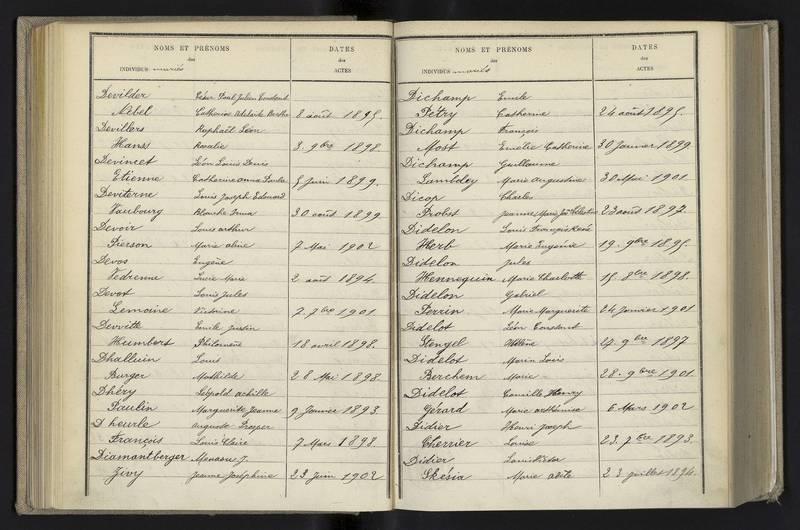 NOMS ET PRÉNOMS
des
INDIVIDUS mariés
DATES
des
ACTES
Devilder César Paul Julien Constant
Nebel Catherine Adélaïde Berthe 8 août 1895.
Devillers Raphaël Léon
Hans Rosalie 3. 9bre 1898.
Devincet Léon Louis Denis
Etienne Catherine Anna Paula 5 juin 1899.
Deviterne Louis Joseph Edouard
Vaubourg Blanche Irma 30 août 1899
Devoir Louis Arthur
Pierson Marie Aline 7 Mai 1902
Devos Eugène
Vedrenne Lucie Marie 2 août 1894.
Devot Louis Jules
Lemoine Victorine 7. 7bre 1901.
Devvitte Emile Justin
Humbert Philomène 18 avril 1898.
Dhalluin Louis
Burger Mathilde 28 Mai 1898
Dhéry Léopold Achille
Paulin Marguerite Jeanne 9 Janvier 1893
D'heurle Auguste Prosper
François Louise Claire 7 Mars 1898.
Diamantberger J.
Zivy Jeanne Joséphine 23 Juin 1902
NOMS ET PRÉNOMS
des
INDIVIDUS mariés
DATES
des
ACTES
Dichamp Emile
Pétry Catherine 24 août 1895.
Dichamp François
Most Emélie Catherine 30 Janvier 1899.
Dichamp Guillaume
Marie Augustine 30 Mai 1901
Dicop Charles
Probst Jeanne Marie 23 août 1897.
Didelon Louis François René
Herb Marie Eugénie 19. 9bre 1895.
Didelon Jules
Hennequin Marie Charlotte 15. 8bre 1898.
Didelon Gabriel
Perrin Marie Marguerite 24 Janvier 1901
Didelot Léon Constant
Stengel Hélène 27. 9bre 1897
Didelot Marin Louis
Berchem Marie 28. 9bre 1901.
Didelot Camille Henry
Gérard Marie Arthémise 6 Mars 1902
Didier Henri Joseph
Cherrier Louise 23. 7bre 1893.
Didier Louis Victor
Skésia Marie 23 juillet 1894.